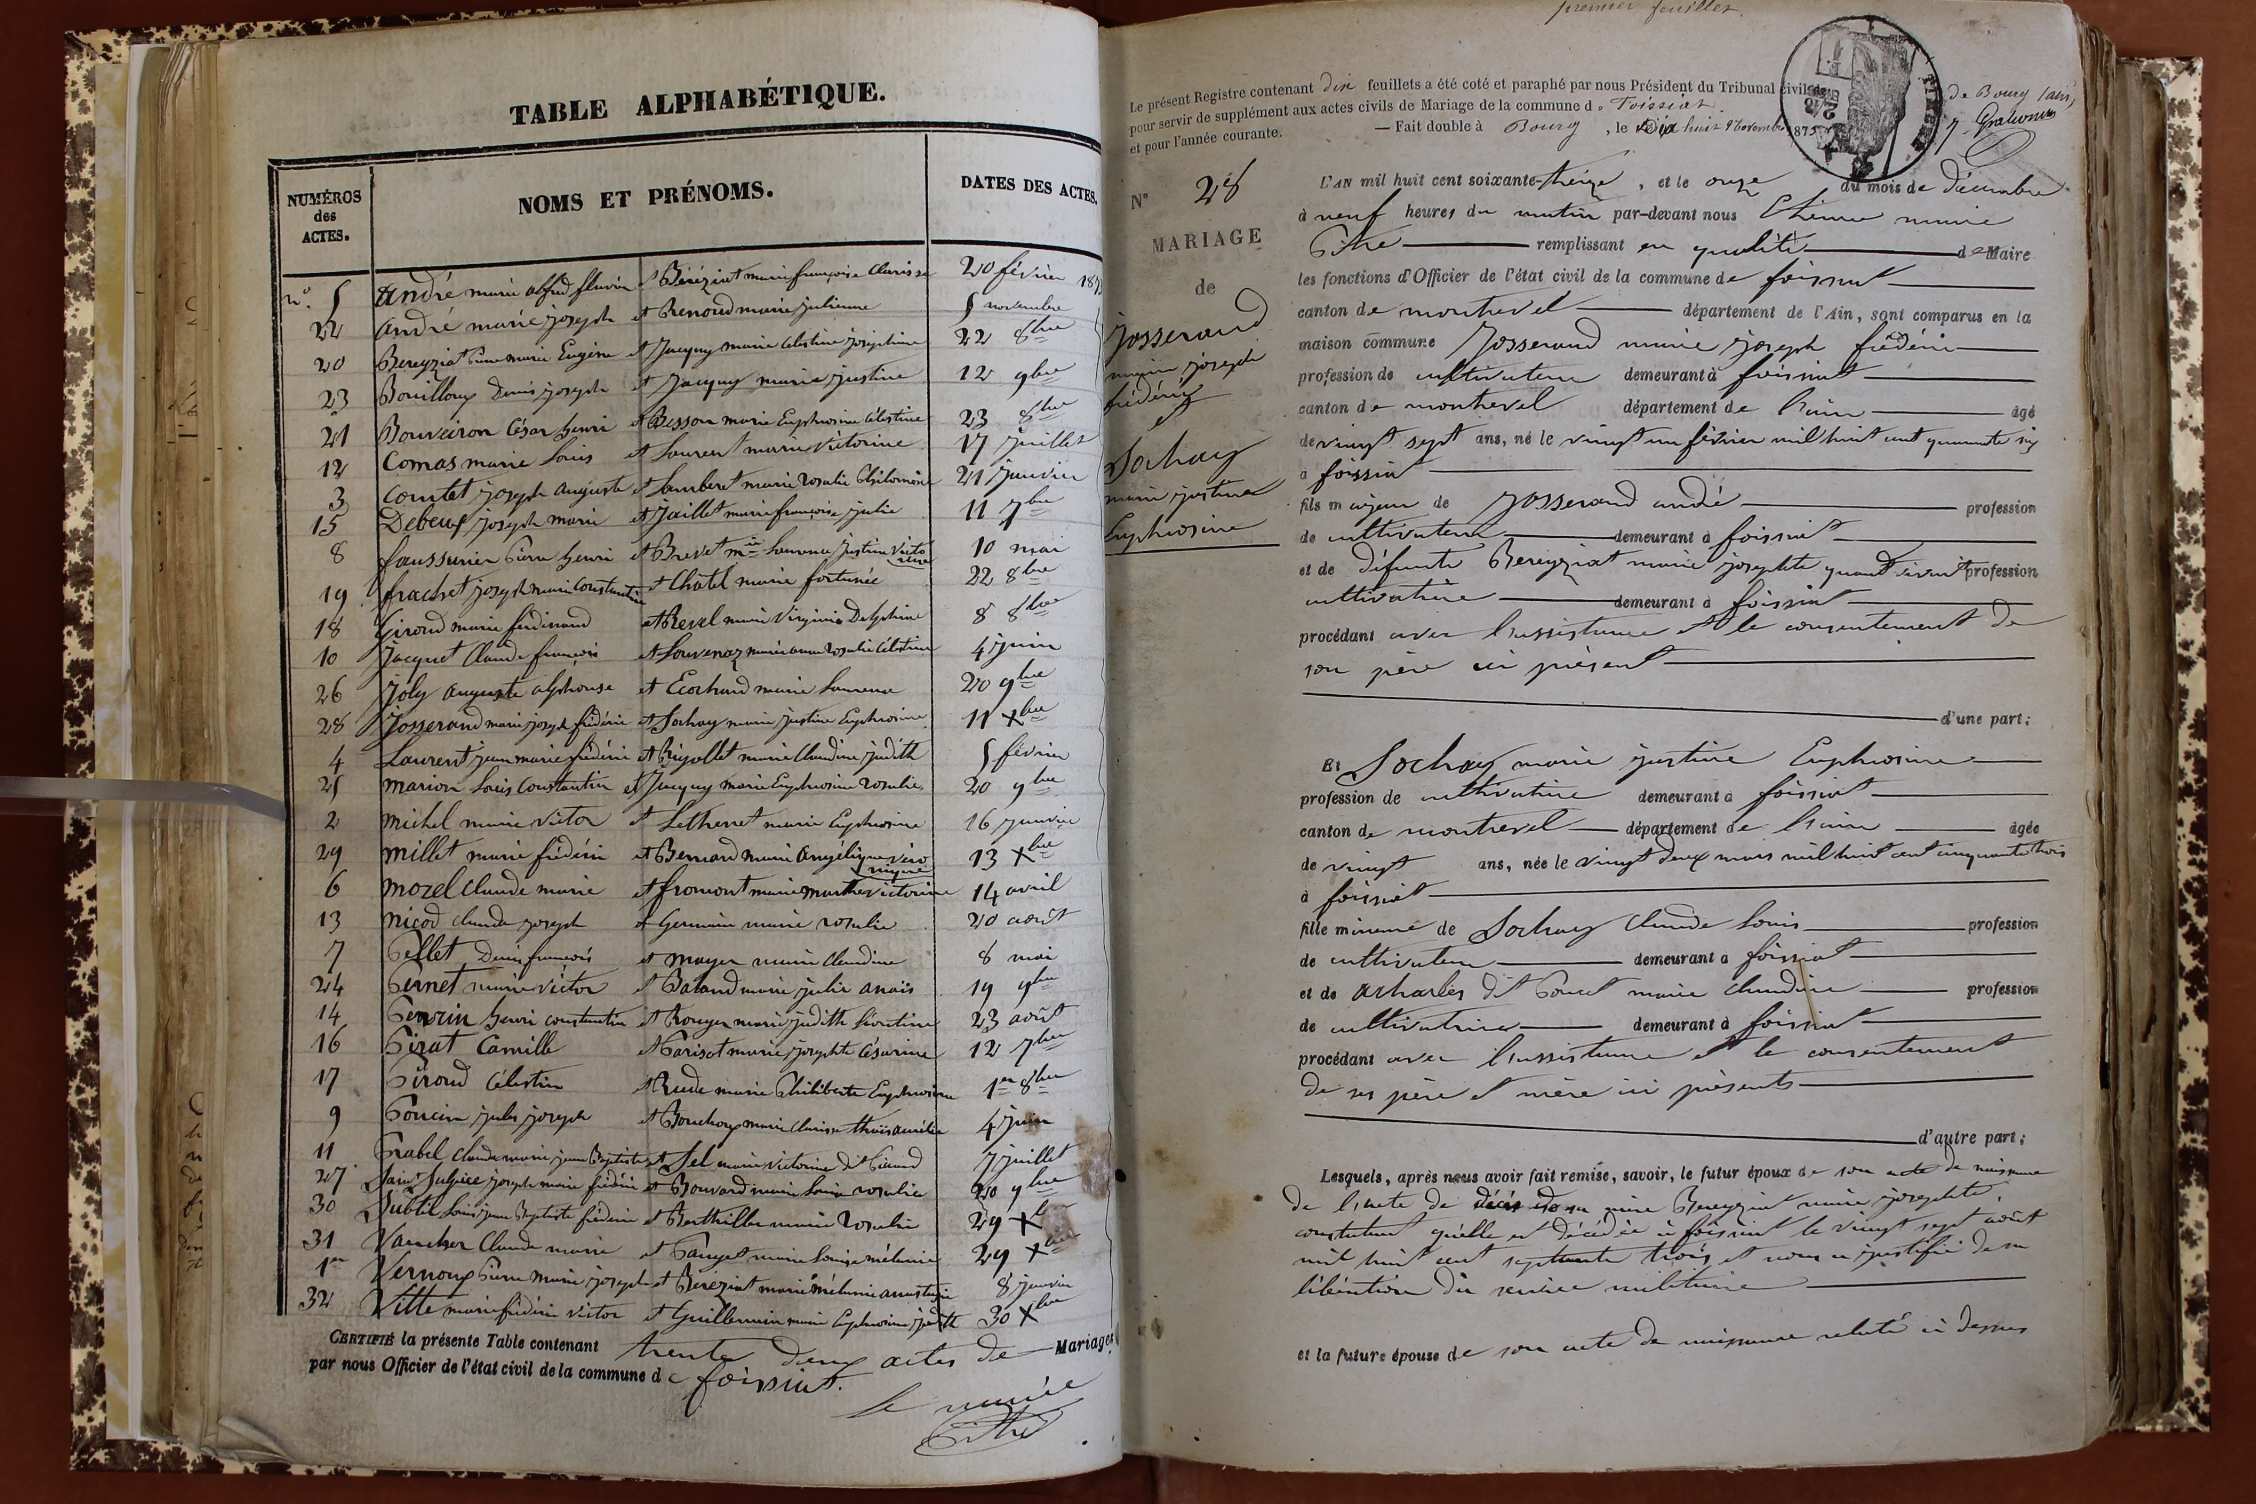 TABLE ALPHABÉTIQUE.
NUMÉROS des ACTES. NOMS ET PRÉNOMS. DATES DES ACTES.
n° 5 André marie alfred flavien et Béréziat marie françoise Clarisse 20 février 1873
22 André marie joseph et Renoud marie julienne 5 novembre
20 Bereyziat Pierre marie Eugène et Jacquy marie Célestine joséphine 22 8bre
23 Bouilloux Denis joseph et Jacquy marie justine 12 9bre
21 Bouveiron César henri et Besson marie Euphrosine Célestine 23 8bre
12 Comas marie Louis et Laurent marie Victorine 17 juillet
3 Comtet joseph auguste et Lambert marie rosalie Philomène 21 janvier
15 Debeuf joseph marie et Jaillet marie françoise julie 11 7bre
8 faussurier Pierre henri et Brevet mie Laurence justine Victorine 10 mai
19 frachet joseph marie Constantin et Chatel marie fortunée 22 8bre
18 Giroud marie ferdinand et Revel marie Virginie Delphine 8 8bre
10 Jacquet Claude françois et Louvenoz marie anne rosalie Célestine 4 juin
26 Joly auguste alphonse et Ecochard marie Laurence 20 9bre
28 Josserand marie joseph frédéric et Sochay marie justine Euphrosine 11 Xbre
4 Laurent jean marie frédéric et Rigollet marie Claudine judith 5 février
25 Marion Louis Constantin et Jacquy marie Euphrosine rosalie 20 9bre
2 Michel marie Victor et Letherret marie Euphrosine 16 janvier
29 Millet marie frédéric et Bernard marie Angélique véronique 13 Xbre
6 Mozel Claude marie et fromont marie marthe victorine 14 avril
13 Nicod claude joseph et Germain marie rosalie 20 août
7 Pellet Denis françois et Moyer marie Claudine 8 mai
24 Pernet marie victor et Baland marie julie anaïs 19 9bre
14 Perrin henri constantin et Rouyer marie judith Léontine 23 août
16 Pirat Camille et Parisot marie josephte Césarine 12 7bre
17 Piroud Célestin et Rude marie Philiberte Euphrosine 1er 8bre
9 Poncin jules joseph et Bouchoux marie Clarisse thaïs aurélie 4 juin
11 Prabel Claude marie jean Baptiste et Sel marie victorine dit Picaud 7 juillet
27 Saint Sulpice joseph marie frédéric et Bouvard marie Louise rosalie 20 9bre
30 Subtil Louis jean Baptiste frédéric et Berthillier marie rosalie 29 Xbre
31 Vaucher Claude marie et Pauget marie Louise mélanie 29 Xbre
1er Vernoux Pierre marie joseph et Béréziat marie mélanie anastasie 8 janvier
32 Vitte marie frédéric victor et Guillermin marie Euphrosine judith 30 Xbre
CERTIFIÉ la présente Table contenant trente deux actes de Mariages
par nous Officier de l'état civil de la commune de foissiat.
le maire
Pitre
premier feuillet.
Le présent Registre contenant dix feuillets a été coté et paraphé par nous Président du Tribunal civil de Bourg (ain)
pour servir de supplément aux actes civils de Mariage de la commune de Foissiat
et pour l'année courante. — Fait double à Bourg, le dix huit Novembre 1873
N° 28
MARIAGE
de
Josserand
marie joseph
frédéric
et
Sochay
marie justine
Euphrosine
L'AN mil huit cent soixante-treize, et le onze du mois de décembre
à neuf heures du matin par-devant nous Etienne marie
Pitre remplissant en qualité de Maire
les fonctions d'Officier de l'état civil de la commune de foissiat
canton de montrevel département de l'Ain, sont comparus en la
maison commune Josserand marie joseph frédéric
profession de cultivateur demeurant à foissiat
canton de montrevel département de l'ain âgé
de vingt sept ans, né le vingt un février mil huit cent quarante six
à foissiat
fils majeur de Josserand andré profession
de cultivateur demeurant à foissiat
et de défunte Bereyziat marie josephte quand vivait profession
cultivatrice demeurant à foissiat
procédant avec l'assistance et le consentement de
son père ici présent
d'une part;
Et Sochay marie justine Euphrosine
profession de cultivatrice demeurant à foissiat
canton de montrevel département de l'ain âgée
de vingt ans, née le vingt deux mars mil huit cent cinquante trois
à foissiat
fille mineure de Sochay Claude Louis profession
de cultivateur demeurant à foissiat
et de Acharles dit Poncet marie claudine profession
de cultivatrice demeurant à foissiat
procédant avec l'assistance et le consentement
de ses père et mère ici présents
d'autre part;
Lesquels, après nous avoir fait remise, savoir, le futur époux de son acte de naissance
de l'acte de décès de sa mère Bereyziat marie josephte,
constatant qu'elle est décédée à foissiat le vingt sept août
mil huit cent septante trois et nous a justifié de sa
libération du service militaire
et la future épouse de son acte de naissance relaté ci dessus